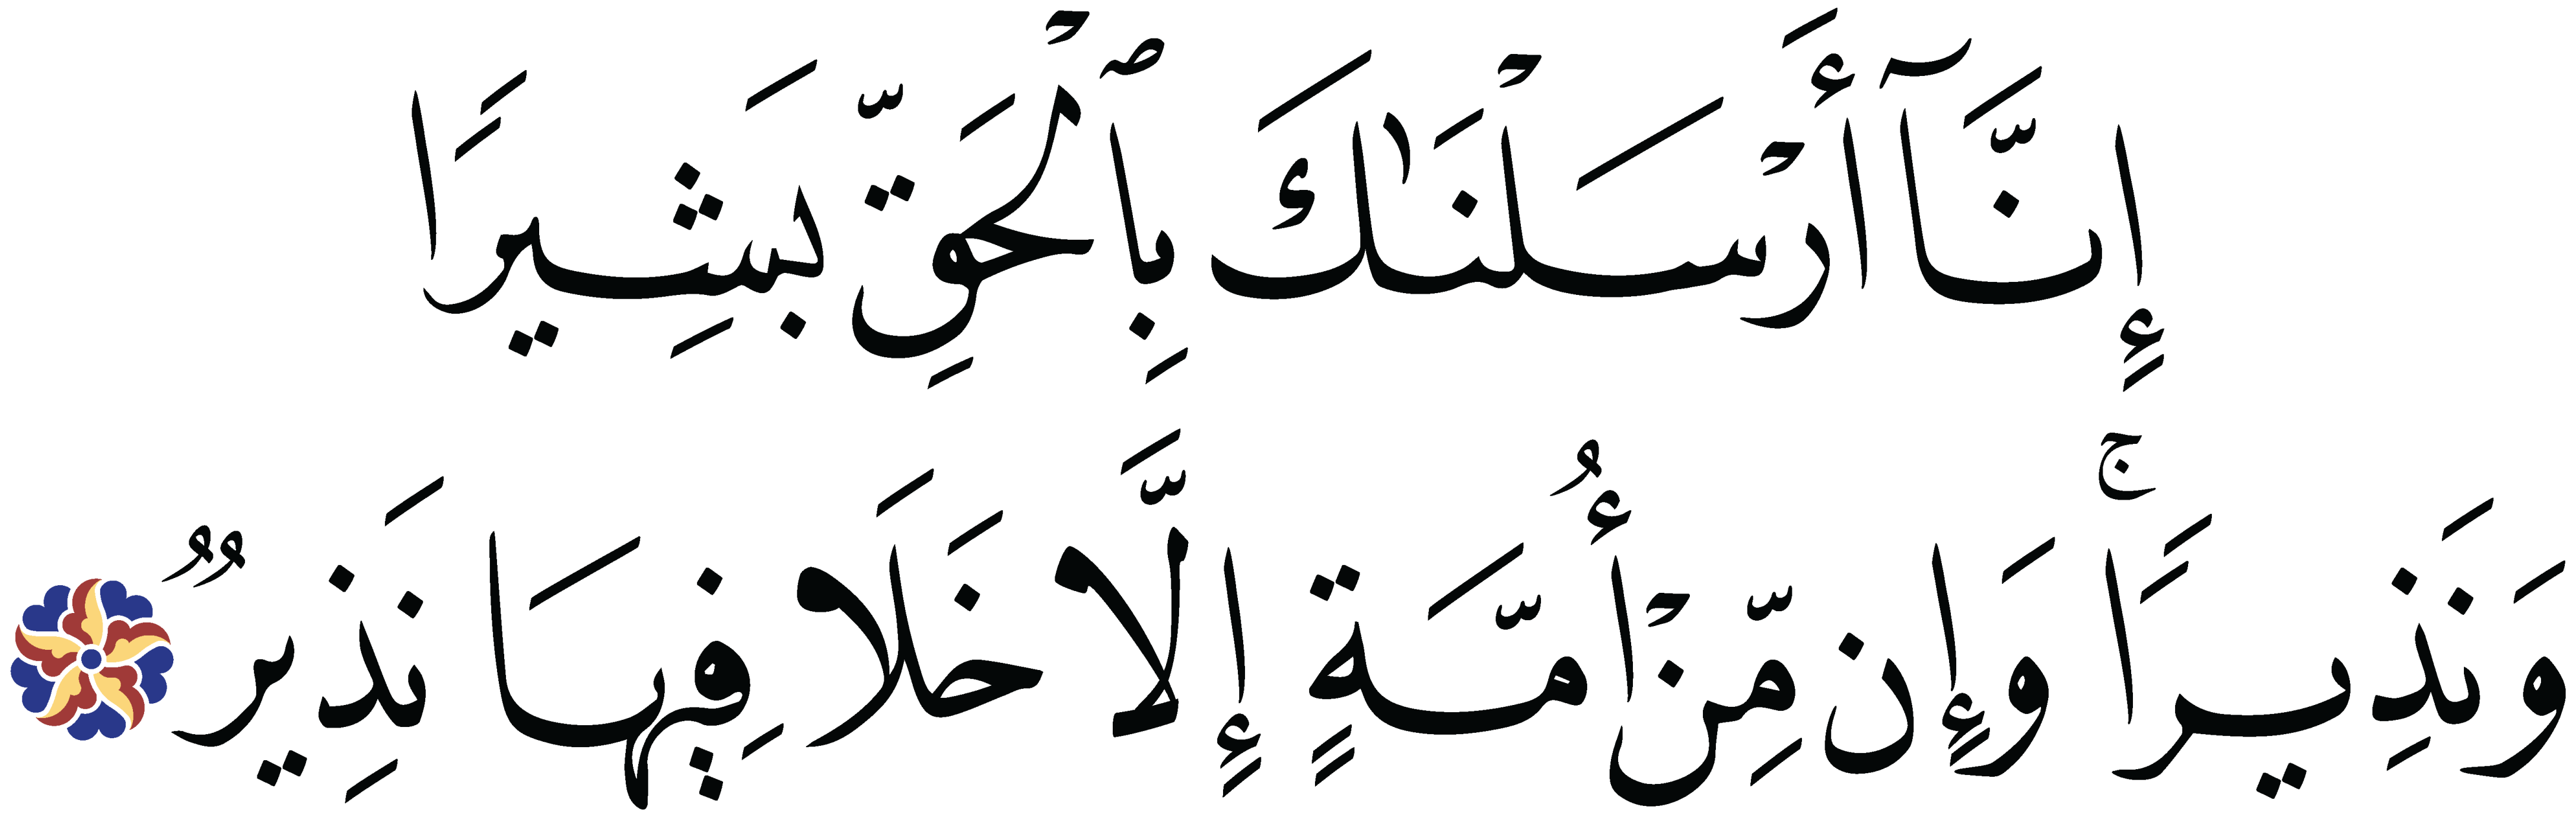 إِنَّآ أَرْسَلْنَٰكَ بِٱلْحَقِّ بَشِيرًا
وَنَذِيرًا ۚ وَإِن مِّنْ أُمَّةٍ إِلَّا خَلَا فِيهَا نَذِيرٌ